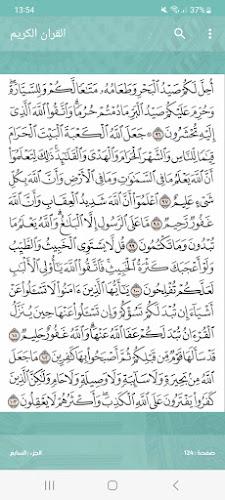 13:54
37%
القران الكريم
أُحِلَّ لَكُمْ صَيْدُ ٱلْبَحْرِ وَطَعَامُهُۥ مَتَٰعًا لَّكُمْ وَلِلسَّيَّارَةِۖ
وَحُرِّمَ عَلَيْكُمْ صَيْدُ ٱلْبَرِّ مَا دُمْتُمْ حُرُمًاۗ وَٱتَّقُوا۟ ٱللَّهَ ٱلَّذِىٓ
إِلَيْهِ تُحْشَرُونَ ٩٦ جَعَلَ ٱللَّهُ ٱلْكَعْبَةَ ٱلْبَيْتَ ٱلْحَرَامَ
قِيَٰمًا لِّلنَّاسِ وَٱلشَّهْرَ ٱلْحَرَامَ وَٱلْهَدْىَ وَٱلْقَلَٰٓئِدَۚ ذَٰلِكَ لِتَعْلَمُوٓا۟
أَنَّ ٱللَّهَ يَعْلَمُ مَا فِى ٱلسَّمَٰوَٰتِ وَمَا فِى ٱلْأَرْضِ وَأَنَّ ٱللَّهَ بِكُلِّ
شَىْءٍ عَلِيمٌ ٩٧ ٱعْلَمُوٓا۟ أَنَّ ٱللَّهَ شَدِيدُ ٱلْعِقَابِ وَأَنَّ ٱللَّهَ
غَفُورٌ رَّحِيمٌ ٩٨ مَّا عَلَى ٱلرَّسُولِ إِلَّا ٱلْبَلَٰغُۗ وَٱللَّهُ يَعْلَمُ مَا
تُبْدُونَ وَمَا تَكْتُمُونَ ٩٩ قُل لَّا يَسْتَوِى ٱلْخَبِيثُ وَٱلطَّيِّبُ
وَلَوْ أَعْجَبَكَ كَثْرَةُ ٱلْخَبِيثِۚ فَٱتَّقُوا۟ ٱللَّهَ يَٰٓأُو۟لِى ٱلْأَلْبَٰبِ
لَعَلَّكُمْ تُفْلِحُونَ ١٠٠ يَٰٓأَيُّهَا ٱلَّذِينَ ءَامَنُوا۟ لَا تَسْـَٔلُوا۟ عَنْ
أَشْيَآءَ إِن تُبْدَ لَكُمْ تَسُؤْكُمْ وَإِن تَسْـَٔلُوا۟ عَنْهَا حِينَ يُنَزَّلُ
ٱلْقُرْءَانُ تُبْدَ لَكُمْ عَفَا ٱللَّهُ عَنْهَاۗ وَٱللَّهُ غَفُورٌ حَلِيمٌ ١٠١
قَدْ سَأَلَهَا قَوْمٌ مِّن قَبْلِكُمْ ثُمَّ أَصْبَحُوا۟ بِهَا كَٰفِرِينَ ١٠٢ مَا جَعَلَ
ٱللَّهُ مِنۢ بَحِيرَةٍ وَلَا سَآئِبَةٍ وَلَا وَصِيلَةٍ وَلَا حَامٍۙ وَلَٰكِنَّ ٱلَّذِينَ
كَفَرُوا۟ يَفْتَرُونَ عَلَى ٱللَّهِ ٱلْكَذِبَۖ وَأَكْثَرُهُمْ لَا يَعْقِلُونَ ١٠٣
صفحة : 124
الجزء السابع